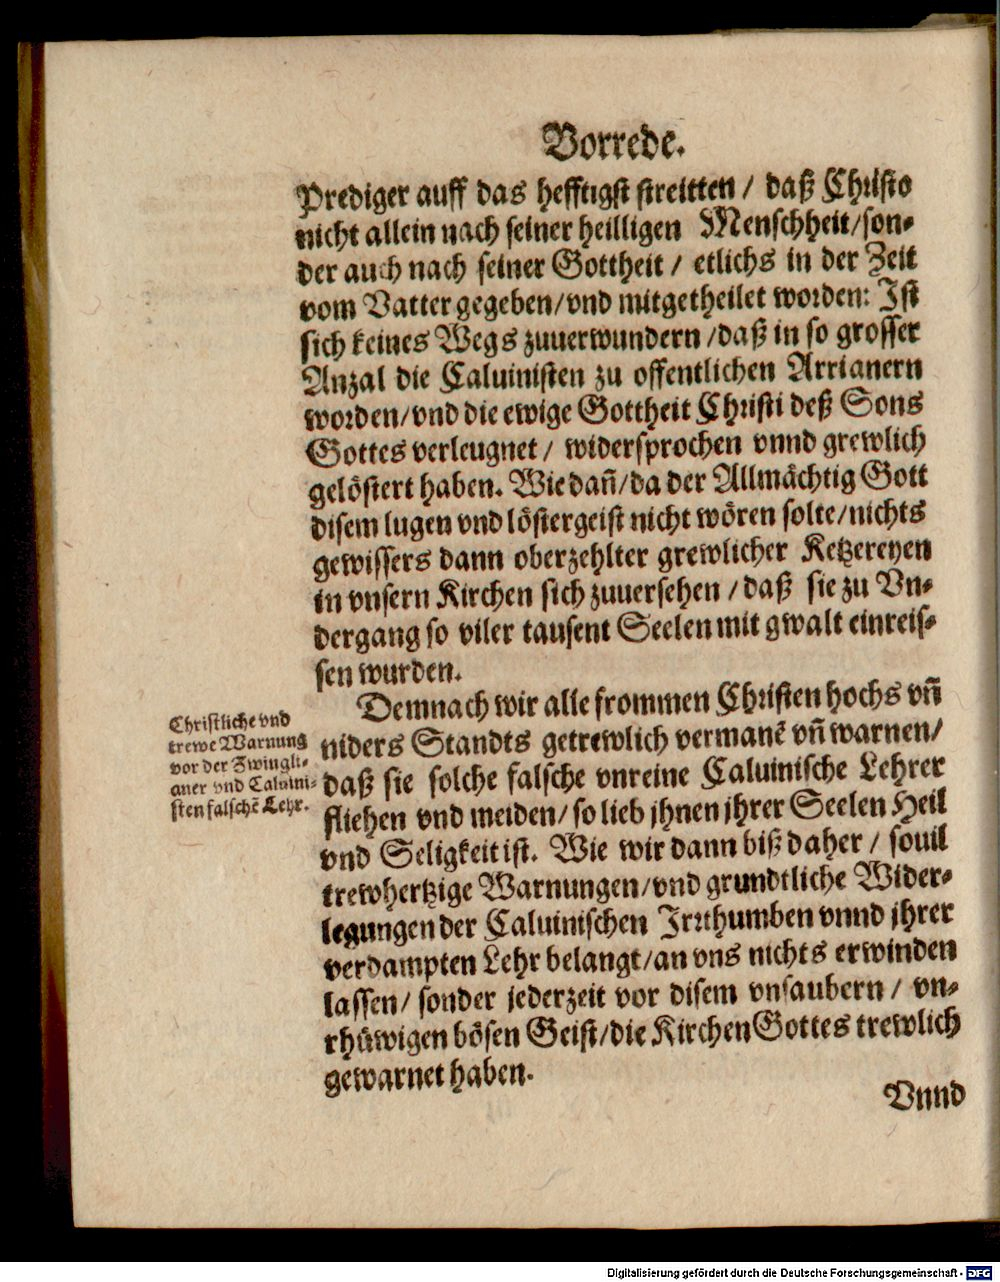 Vorrede.
Prediger auff das hefftigst streitten / daß Christo
nicht allein nach seiner heilligen Menschheit/son-
der auch nach seiner Gottheit / etlichs in der Zeit
vom Vatter gegeben/vnd mitgetheilet worden: Ist
sich keines Wegs zuuerwundern /daß in so grosser
Anzal die Caluinisten zu offentlichen Arrianern
worden/vnd die ewige Gottheit Christi deß Sons
Gottes verleugnet / widersprochen vnnd grewlich
gelöstert haben. Wie dañ/da der Allmächtig Gott
disem lugen vnd löstergeist nicht wören solte/nichts
gewissers dann oberzehlter grewlicher Ketzereyen
in vnsern Kirchen sich zuuersehen / daß sie zu Vn-
dergang so viler tausent Seelen mit gwalt einreis-
sen wurden.
Demnach wir alle frommen Christen hochs vñ
niders Standts getrewlich vermanē vñ warnen/
daß sie solche falsche vnreine Caluinische Lehrer
fliehen vnd meiden/ so lieb jhnen jhrer Seelen Heil
vnd Seligkeit ist. Wie wir dann biß daher / souil
trewhertzige Warnungen/vnd grundtliche Wider-
legungen der Caluinischen Irrthumben vnnd jhrer
verdampten Lehr belangt/an vns nichts erwinden
lassen/ sonder jederzeit vor disem vnsaubern / vn-
rhüwigen bösen Geist/die Kirchen Gottes trewlich
gewarnet haben.
Vnnd
Christliche vnd
trewe Warnung
vor der Zwingli-
aner vnd Caluini-
sten falschē Lehr.
Digitalisierung gefördert durch die Deutsche Forschungsgemeinschaft - DFG